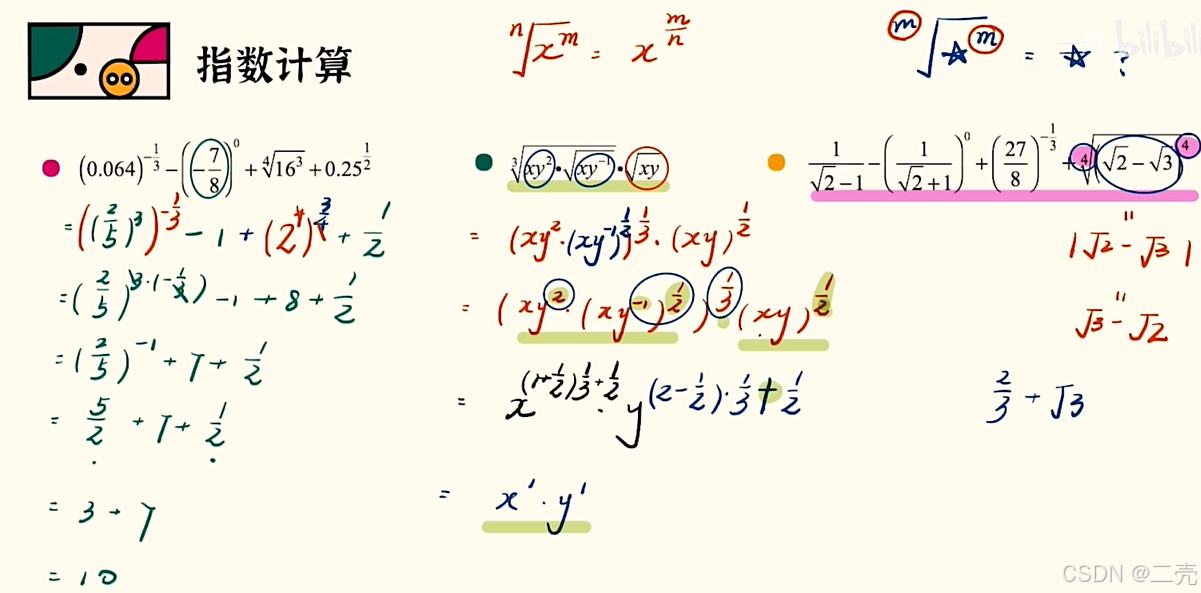 指数计算
ⁿ√(xᵐ) = x^(m/n)
ᵐ√(☆ᵐ) = ☆ ?
bilibili
(0.064)^(-1/3) - (-7/8)^0 + ⁴√(16³) + 0.25^(1/2)
= ((2/5)³)^(-1/3) - 1 + (2⁴)^(3/4) + 1/2
= (2/5)^(3·(-1/3)) - 1 + 8 + 1/2
= (2/5)^(-1) + 7 + 1/2
= 5/2 + 7 + 1/2
= 3 + 7
= 10
³√(xy²·√(xy⁻¹))·√(xy)
= (xy²·(xy⁻¹)^(1/2))^(1/3)·(xy)^(1/2)
= (xy²·(xy⁻¹)^(1/2))^(1/3)·(xy)^(1/2)
= x^((1+1/2)1/3+1/2)·y^((2-1/2)·1/3+1/2)
= x¹·y¹
1/(√2-1) - (1/(√2+1))^0 + (27/8)^(-1/3) + ⁴√((√2-√3)⁴)
"
|√2-√3|
"
√3-√2
2/3 + √3
CSDN @二壳